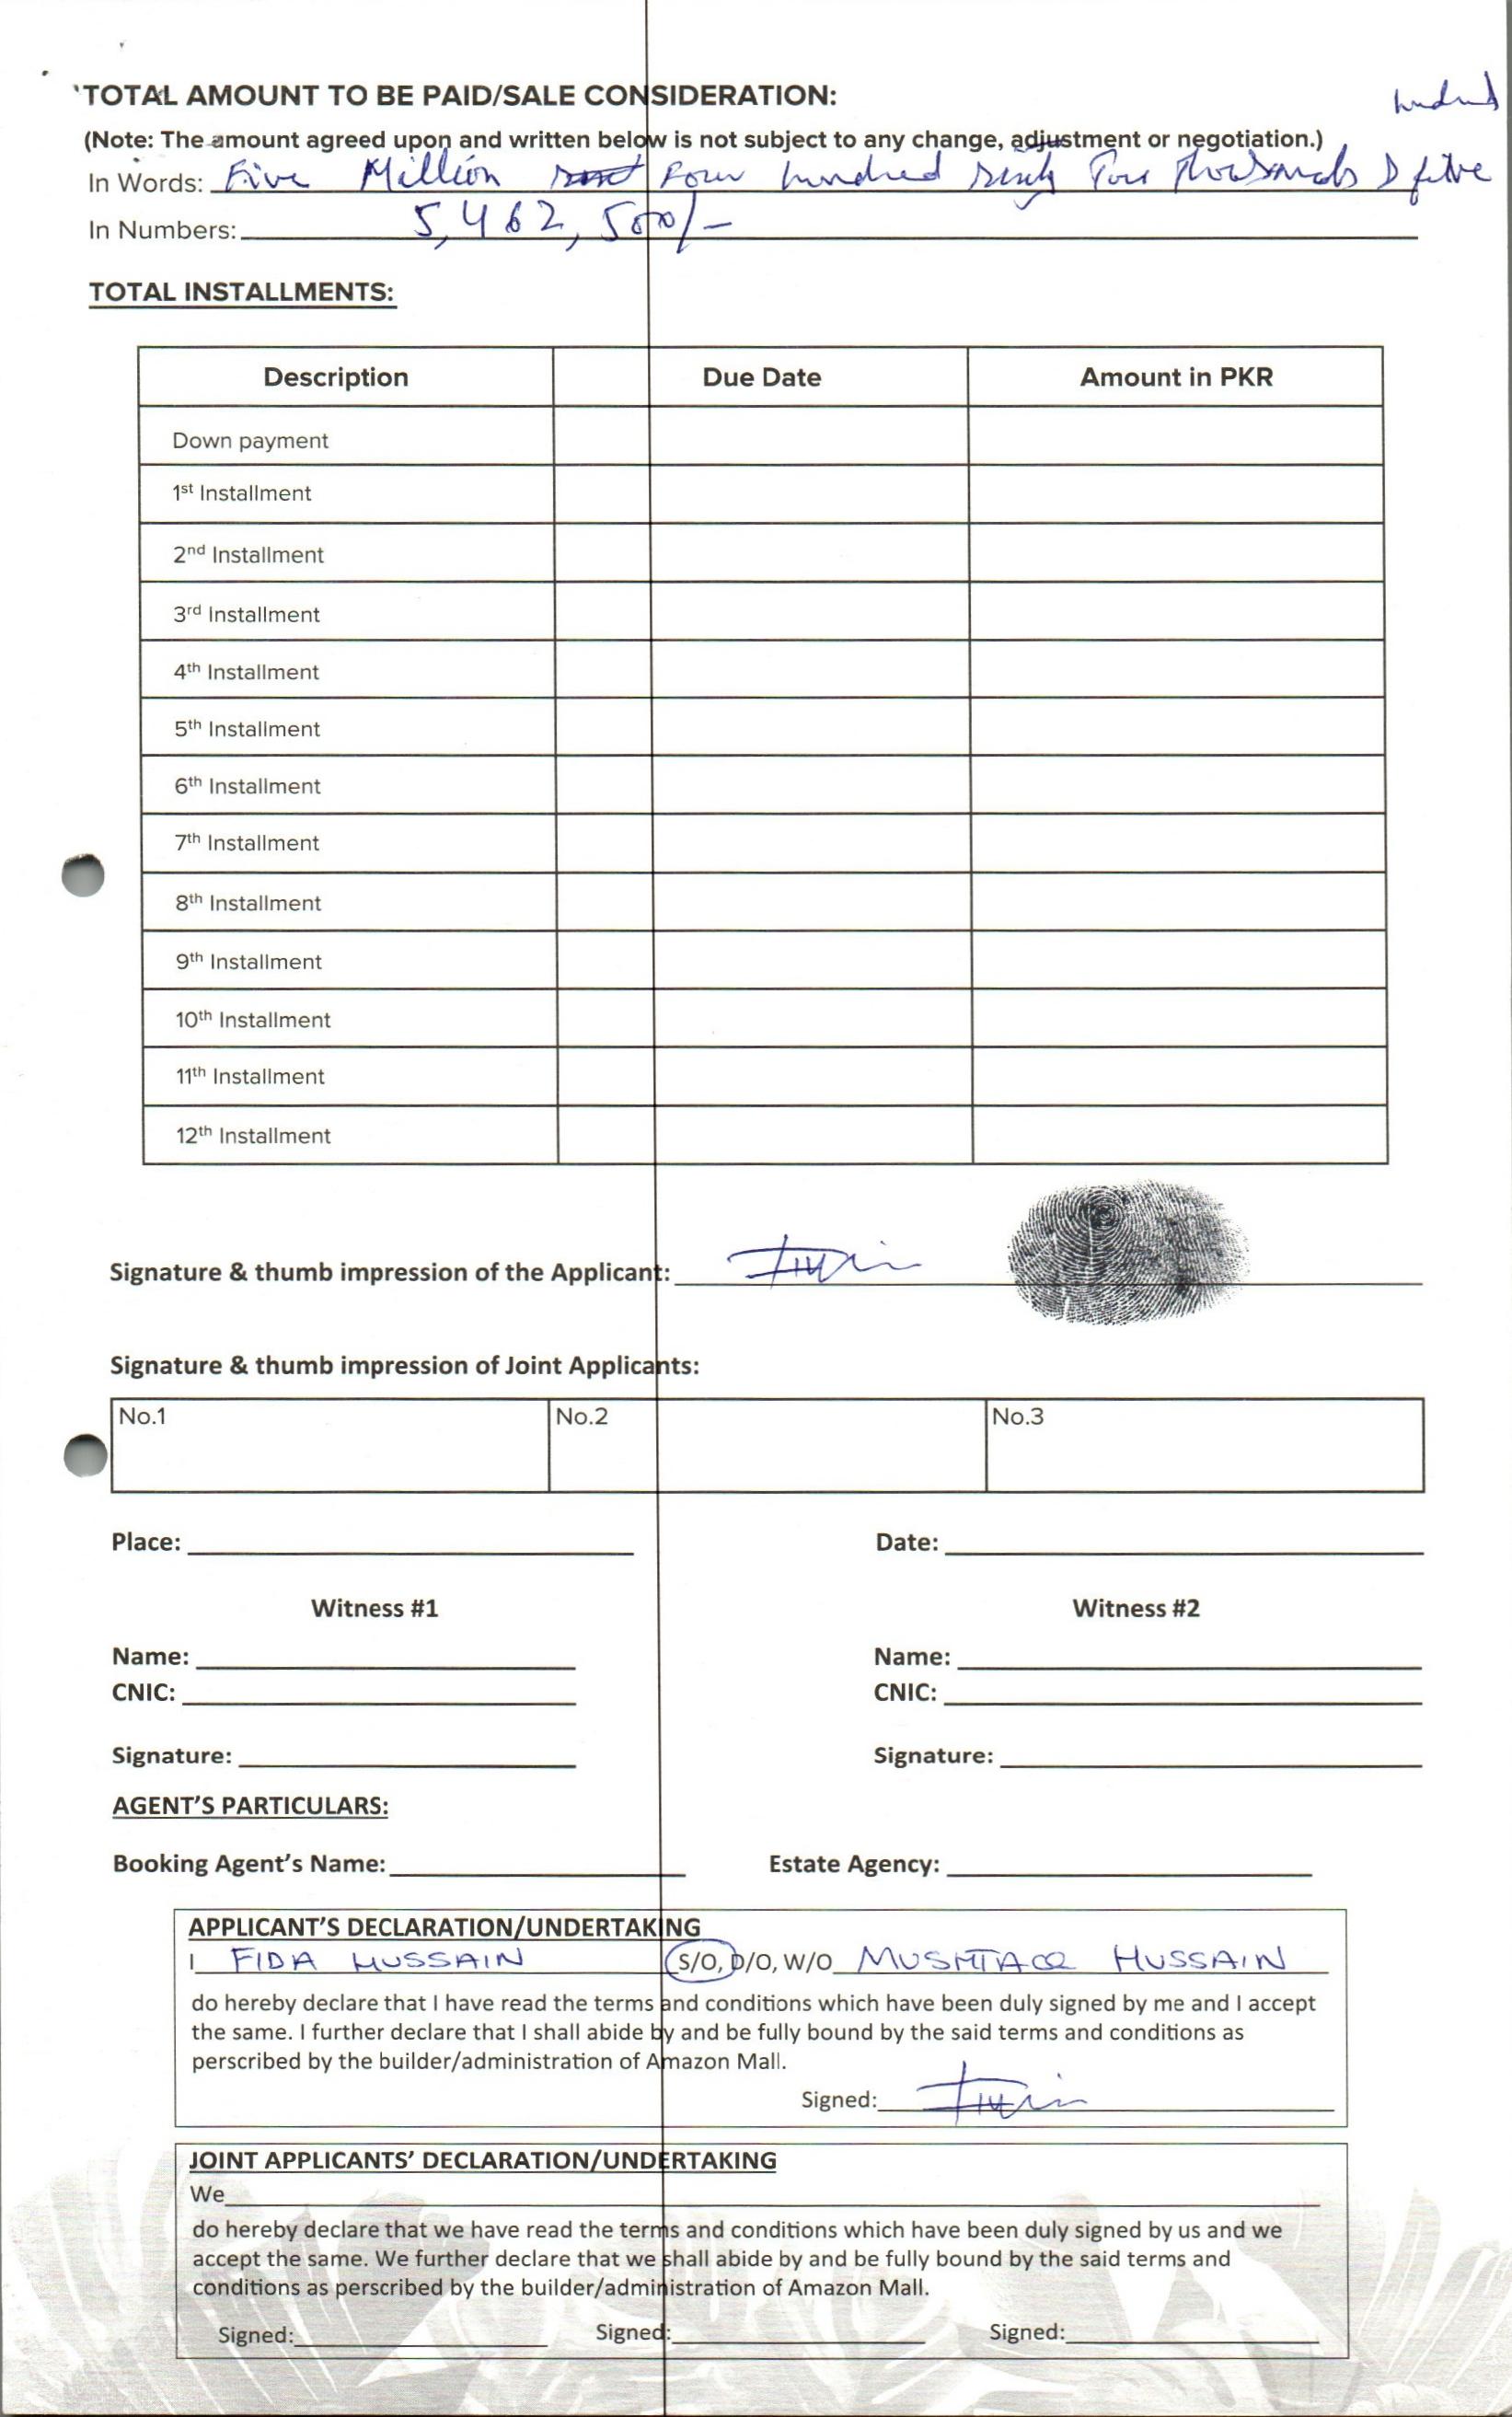 hundred
TOTAL AMOUNT TO BE PAID/SALE CONSIDERATION:
(Note: The amount agreed upon and written below is not subject to any change, adjustment or negotiation.)
In Words: Five Million Four hundred sixty Two thousands & five
In Numbers: 5,462,500/-
TOTAL INSTALLMENTS:
Description Due Date Amount in PKR
Down payment
1st Installment
2nd Installment
3rd Installment
4th Installment
5th Installment
6th Installment
7th Installment
8th Installment
9th Installment
10th Installment
11th Installment
12th Installment
Signature & thumb impression of the Applicant:
Signature & thumb impression of Joint Applicants:
No.1 No.2 No.3
Place: Date:
Witness #1 Witness #2
Name: Name:
CNIC: CNIC:
Signature: Signature:
AGENT'S PARTICULARS:
Booking Agent's Name: Estate Agency:
APPLICANT'S DECLARATION/UNDERTAKING
I FIDA HUSSAIN S/O, D/O, W/O MUSHTAQ HUSSAIN
do hereby declare that I have read the terms and conditions which have been duly signed by me and I accept
the same. I further declare that I shall abide by and be fully bound by the said terms and conditions as
perscribed by the builder/administration of Amazon Mall.
Signed:
JOINT APPLICANTS' DECLARATION/UNDERTAKING
We
do hereby declare that we have read the terms and conditions which have been duly signed by us and we
accept the same. We further declare that we shall abide by and be fully bound by the said terms and
conditions as perscribed by the builder/administration of Amazon Mall.
Signed: Signed: Signed: